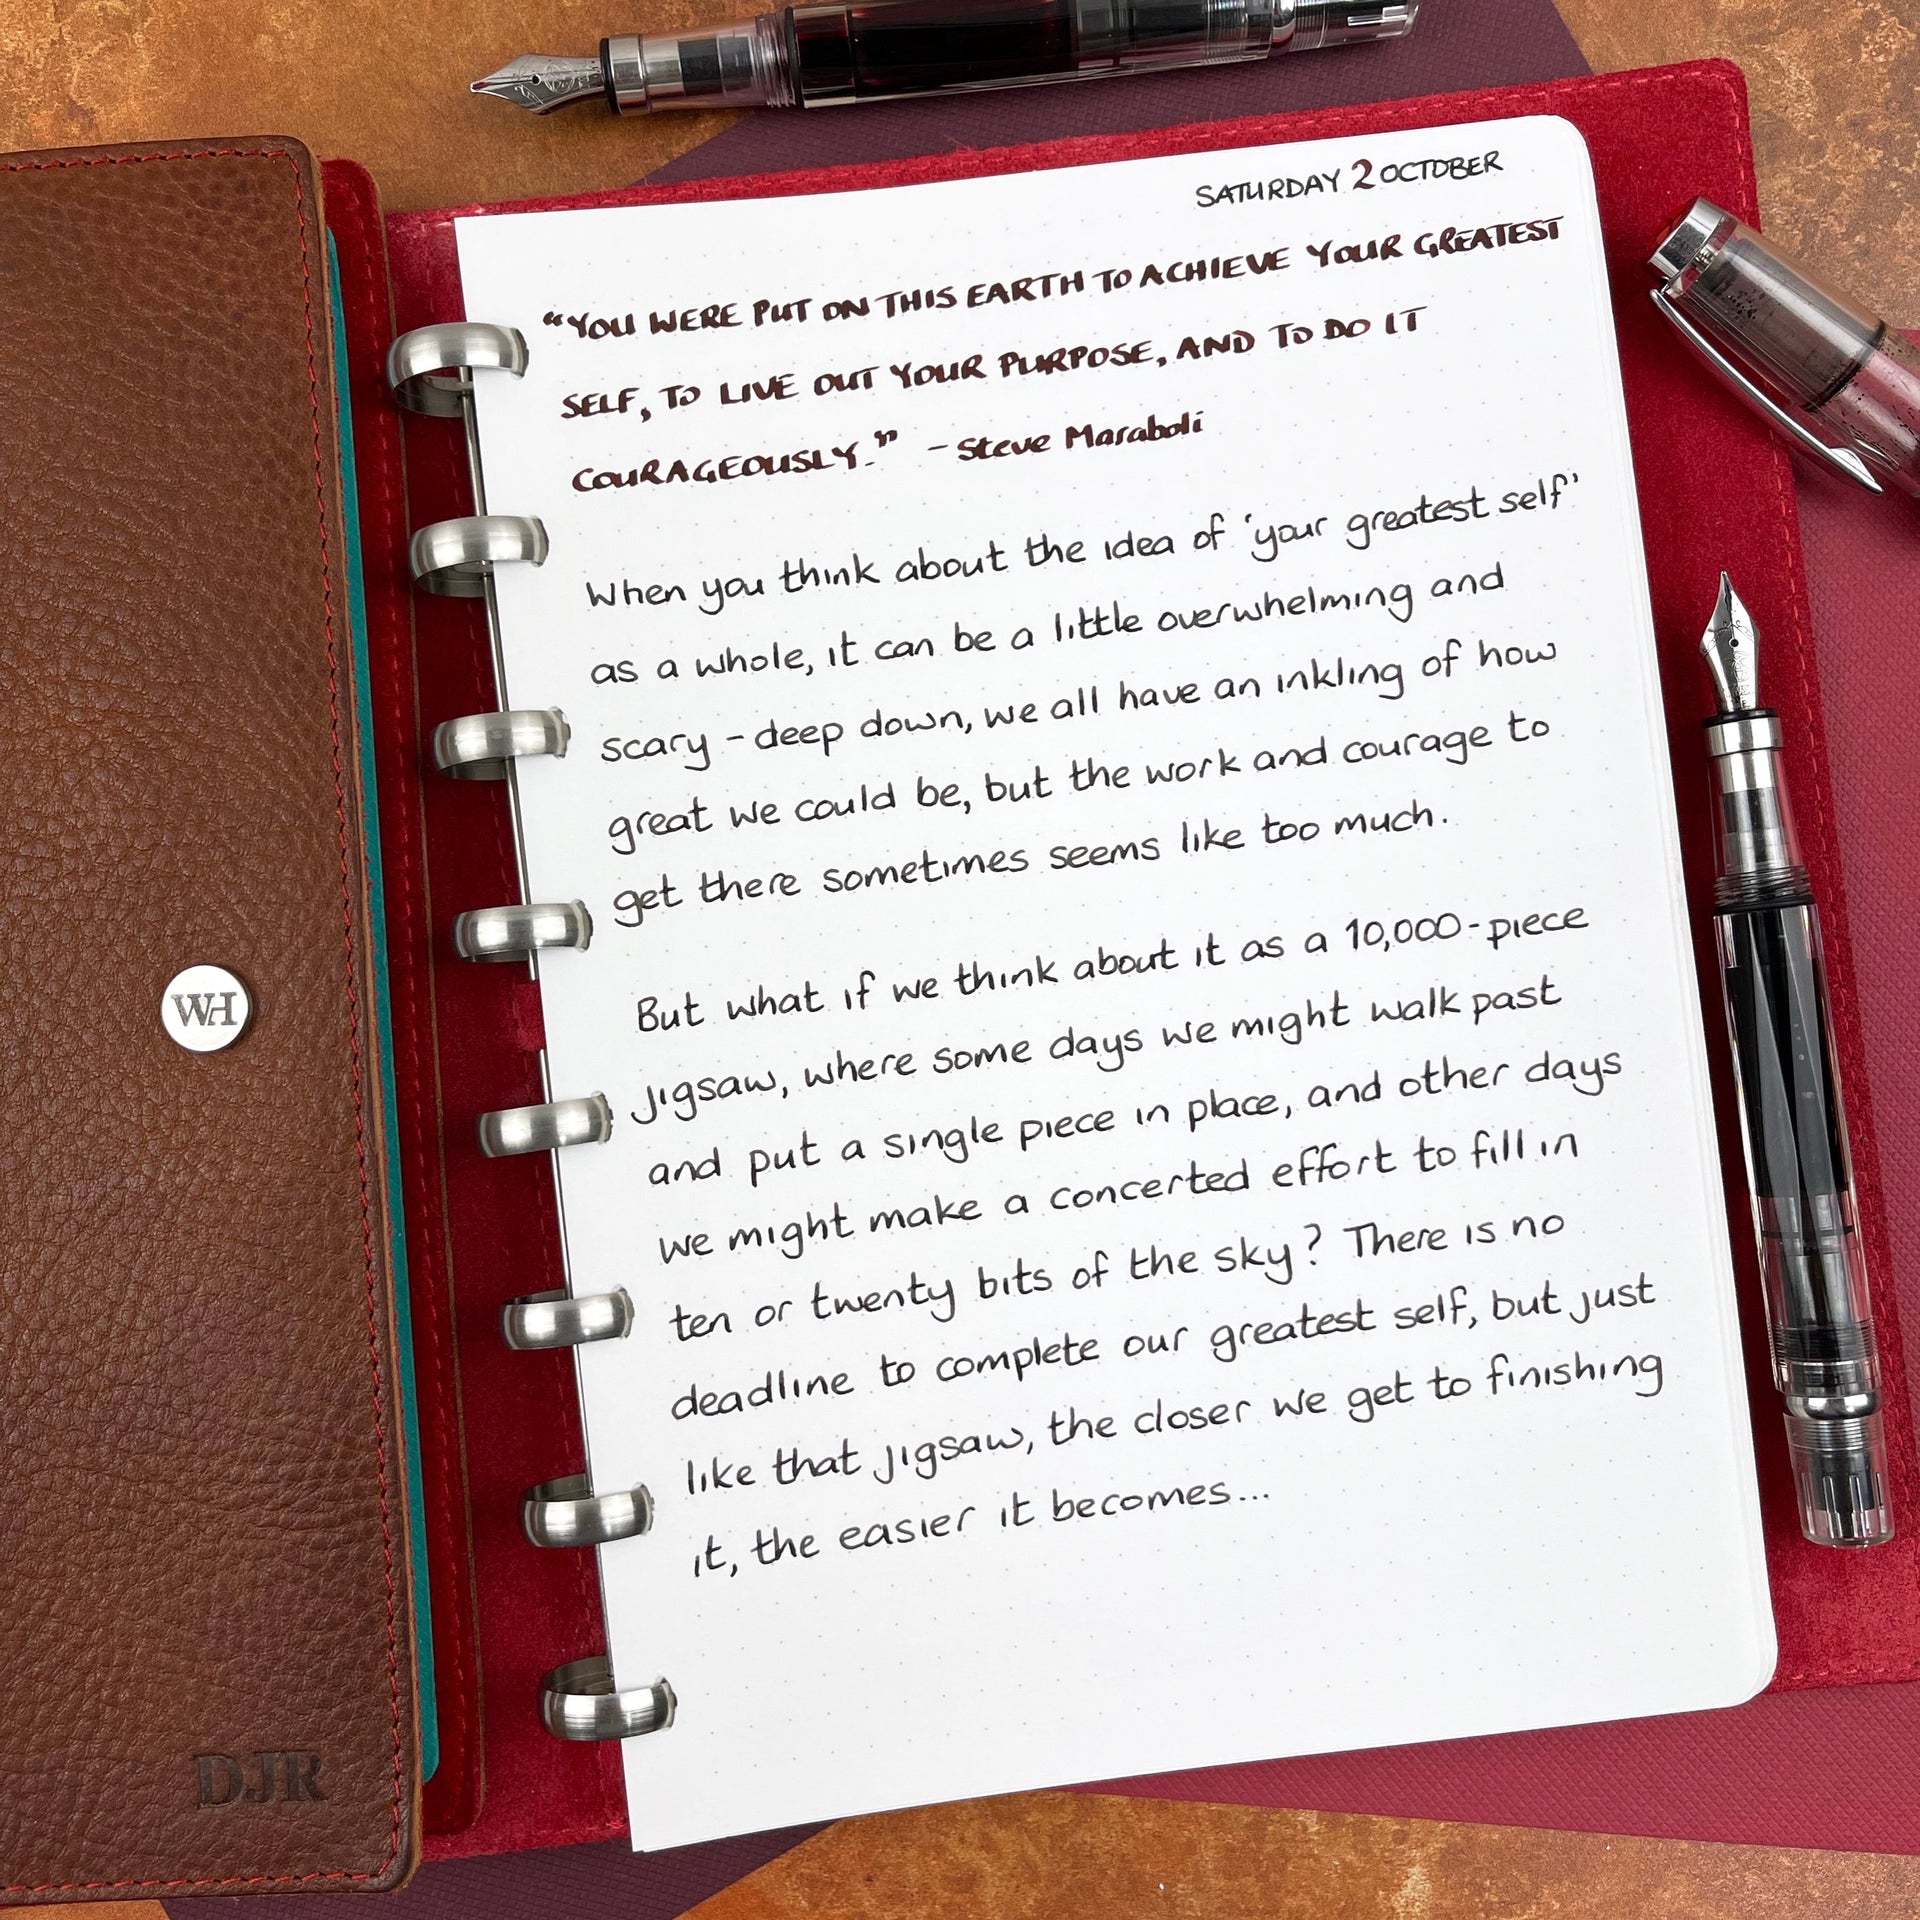 SATURDAY 2 OCTOBER
“YOU WERE PUT ON THIS EARTH TO ACHIEVE YOUR GREATEST
SELF, TO LIVE OUT YOUR PURPOSE, AND TO DO IT
COURAGEOUSLY.” - Steve Maraboli
When you think about the idea of 'your greatest self'
as a whole, it can be a little overwhelming and
scary - deep down, we all have an inkling of how
great we could be, but the work and courage to
get there sometimes seems like too much.
But what if we think about it as a 10,000-piece
jigsaw, where some days we might walk past
and put a single piece in place, and other days
we might make a concerted effort to fill in
ten or twenty bits of the sky? There is no
deadline to complete our greatest self, but just
like that jigsaw, the closer we get to finishing
it, the easier it becomes...
WH
DJR